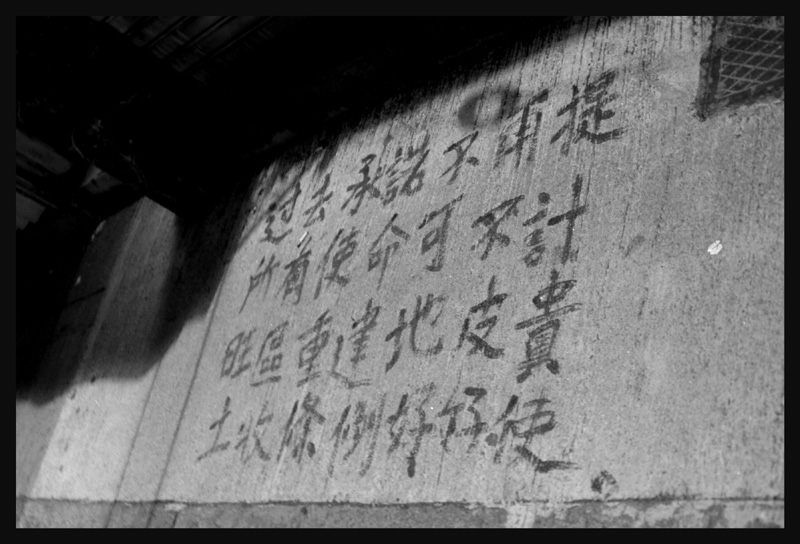 過去承諾不再提
所有使命可不計
旺區重建地皮貴
土收條例好好使